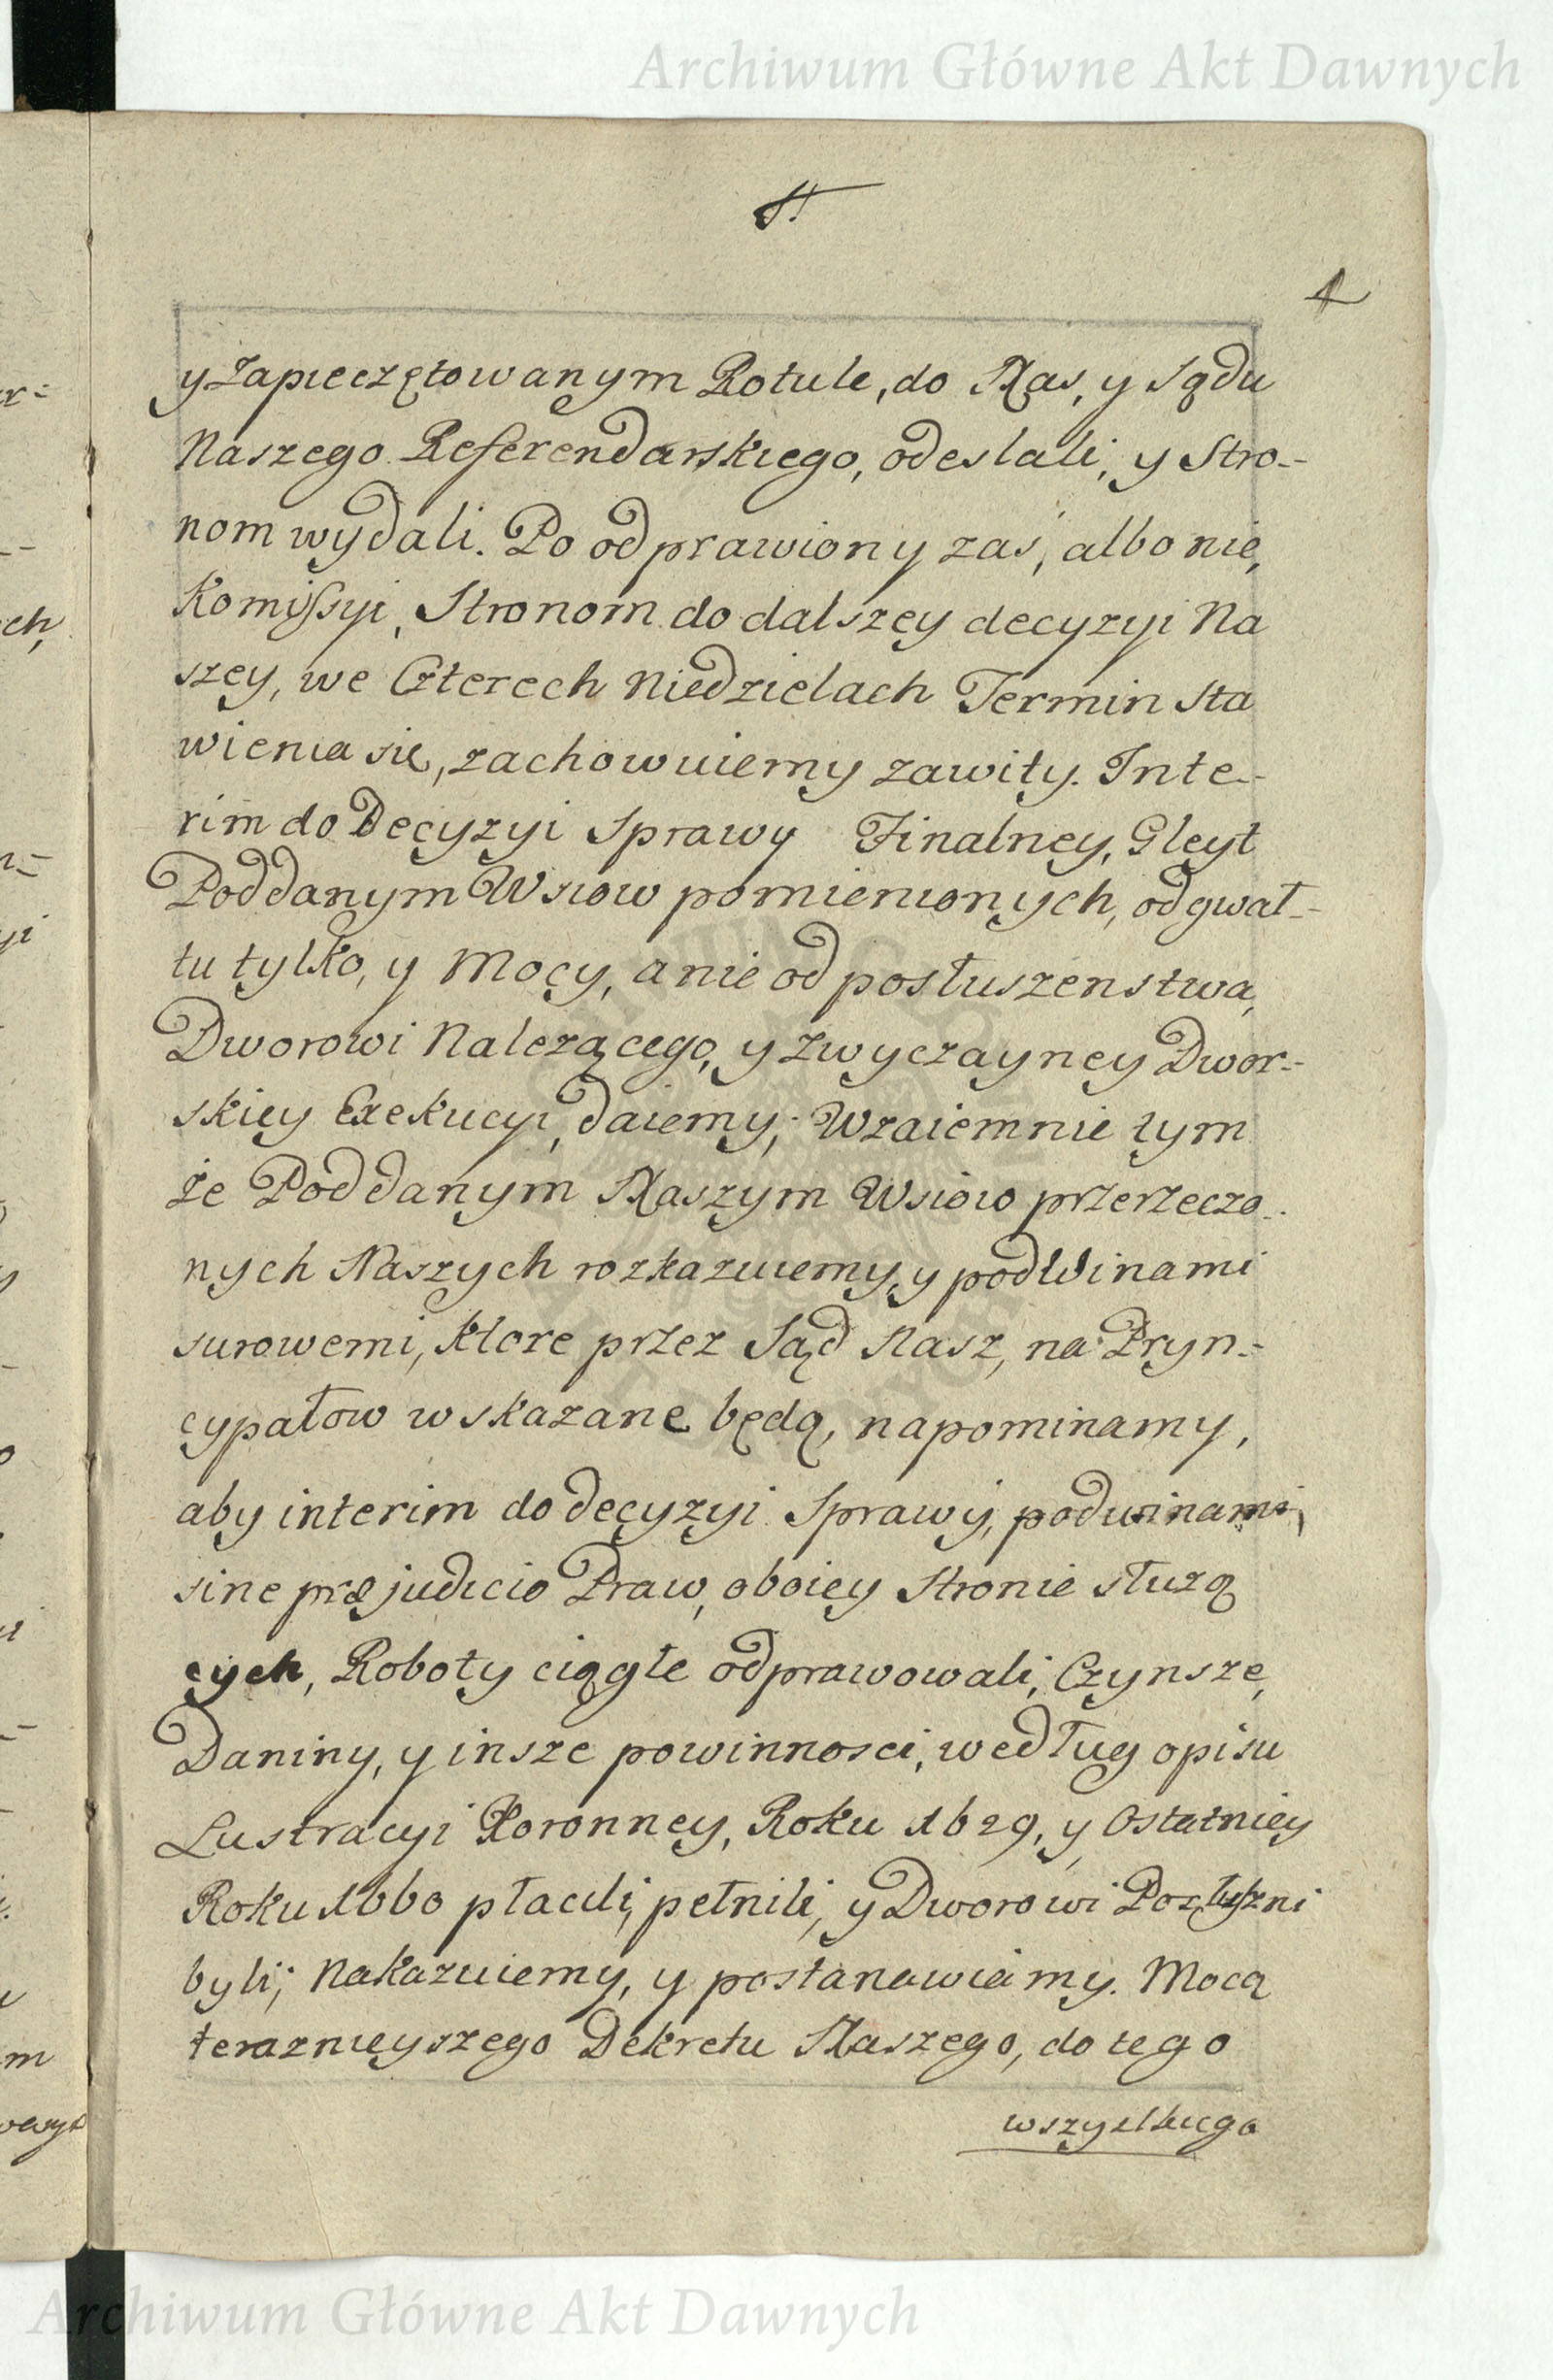 Archiwum Główne Akt Dawnych
4
y Zapieczętowanym Rotule, do Nas, y Sądu
Naszego Referendarskiego, odeslali, y Stro-
nom wydali. Po odprawiony zaś, albo nie,
Komissyi, Stronom do dalszey decyzyi Na
szey, we Czterech Niedzielach Termin Sta
wienia się, zachowuiemy zawity. Inte-
rim do Decyzyi Sprawy Finalney, Gleyt
Poddanym Wsiow pomienionych, od gwał-
tu tylko, y Mocy, a nie od posłuszenstwa,
Dworowi Nalezącego, y Zwyczayney Dwor-
skiey Exekucyi, daiemy; Wzaiemnie tym
że Poddanym Naszym Wsiow przerzeczo-
nych Naszych rozkazuiemy, y pod Winami
surowemi, ktore przez Sąd Nasz, na Pryn-
cypałow wskazane będą, napominamy,
aby interim do decyzyi Sprawy, pod winami,
sine præjudicio Praw, oboiey Stronie służą
cych, Roboty ciągłe odprawowali, Czynsze,
Daniny, y insze powinnosci, według opisu
Lustracyi Koronney, Roku 1629, y Ostatniey
Roku 1660 płacili, pełnili, y Dworowi Posłuszni
byli; Nakazuiemy, y postanawiamy. Mocą
teraznieyszego Dekretu Naszego, do tego
wszystkiego
Archiwum Główne Akt Dawnych